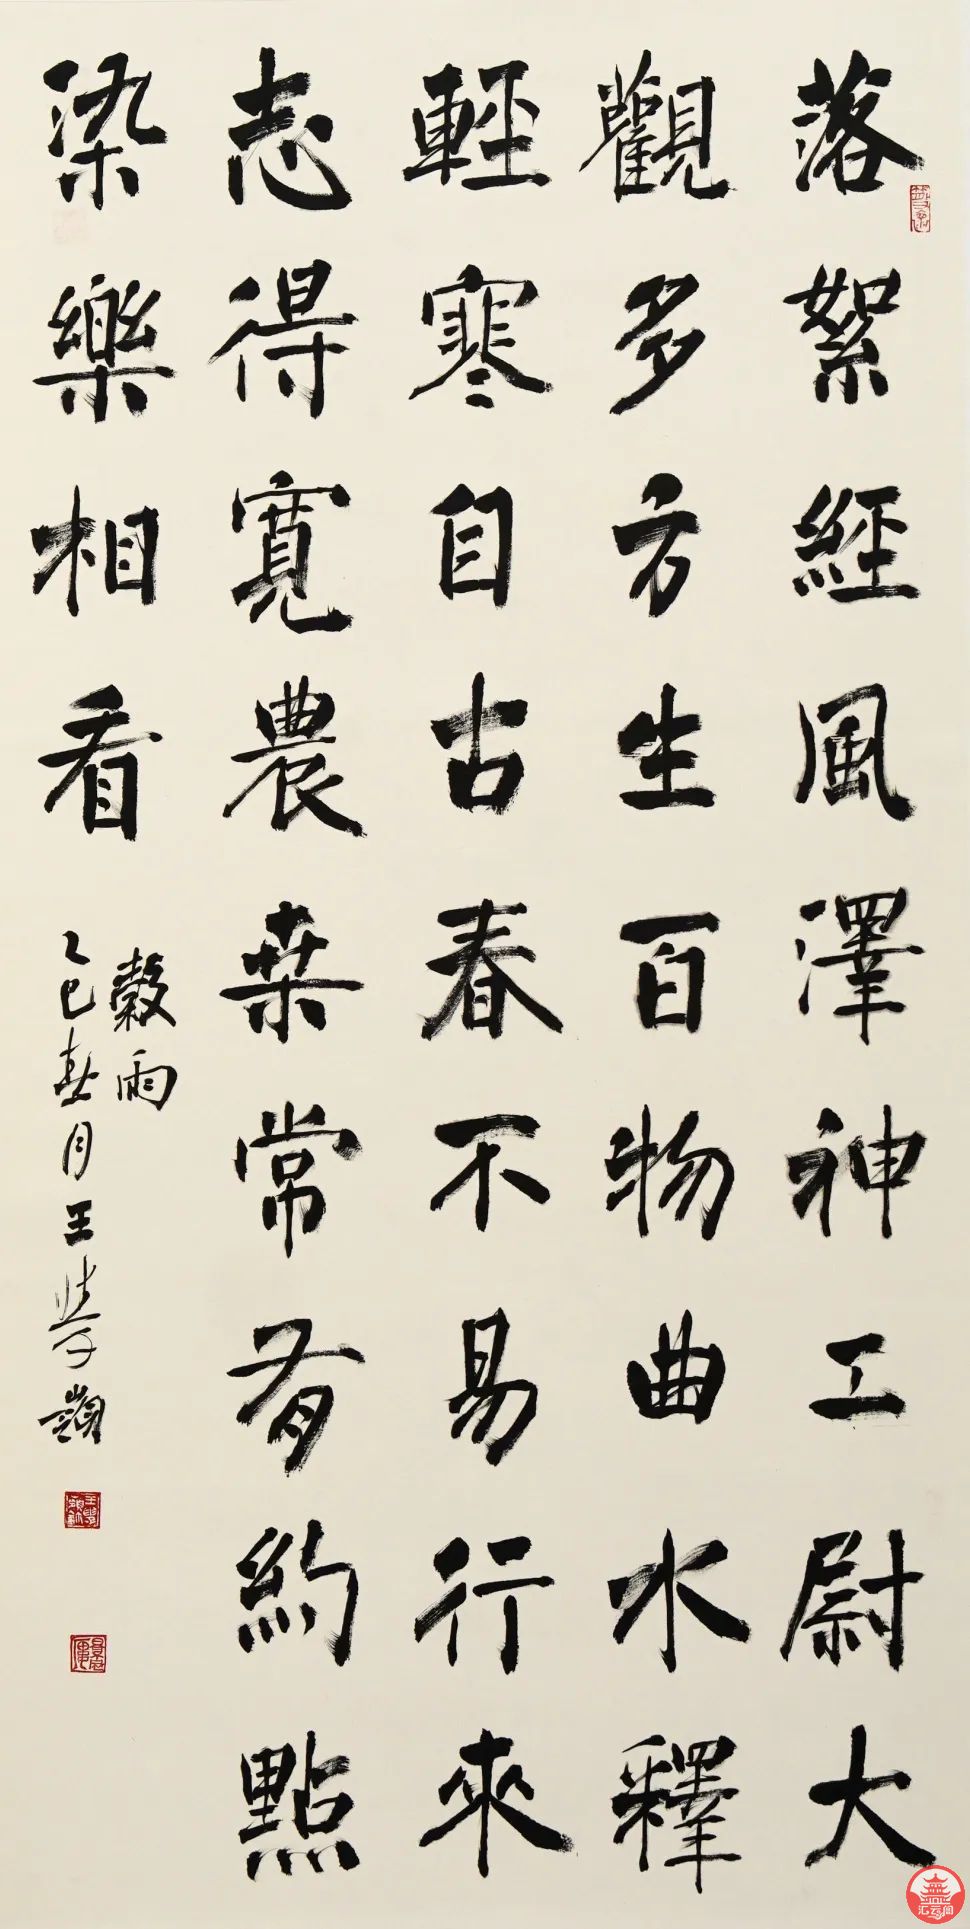 落絮經風澤神工尉大
觀多方生百物曲水釋
輕寒自古春不易行來
志得寬農桒常有約點
染樂相看
穀雨
乙巳春月王
汇云阁